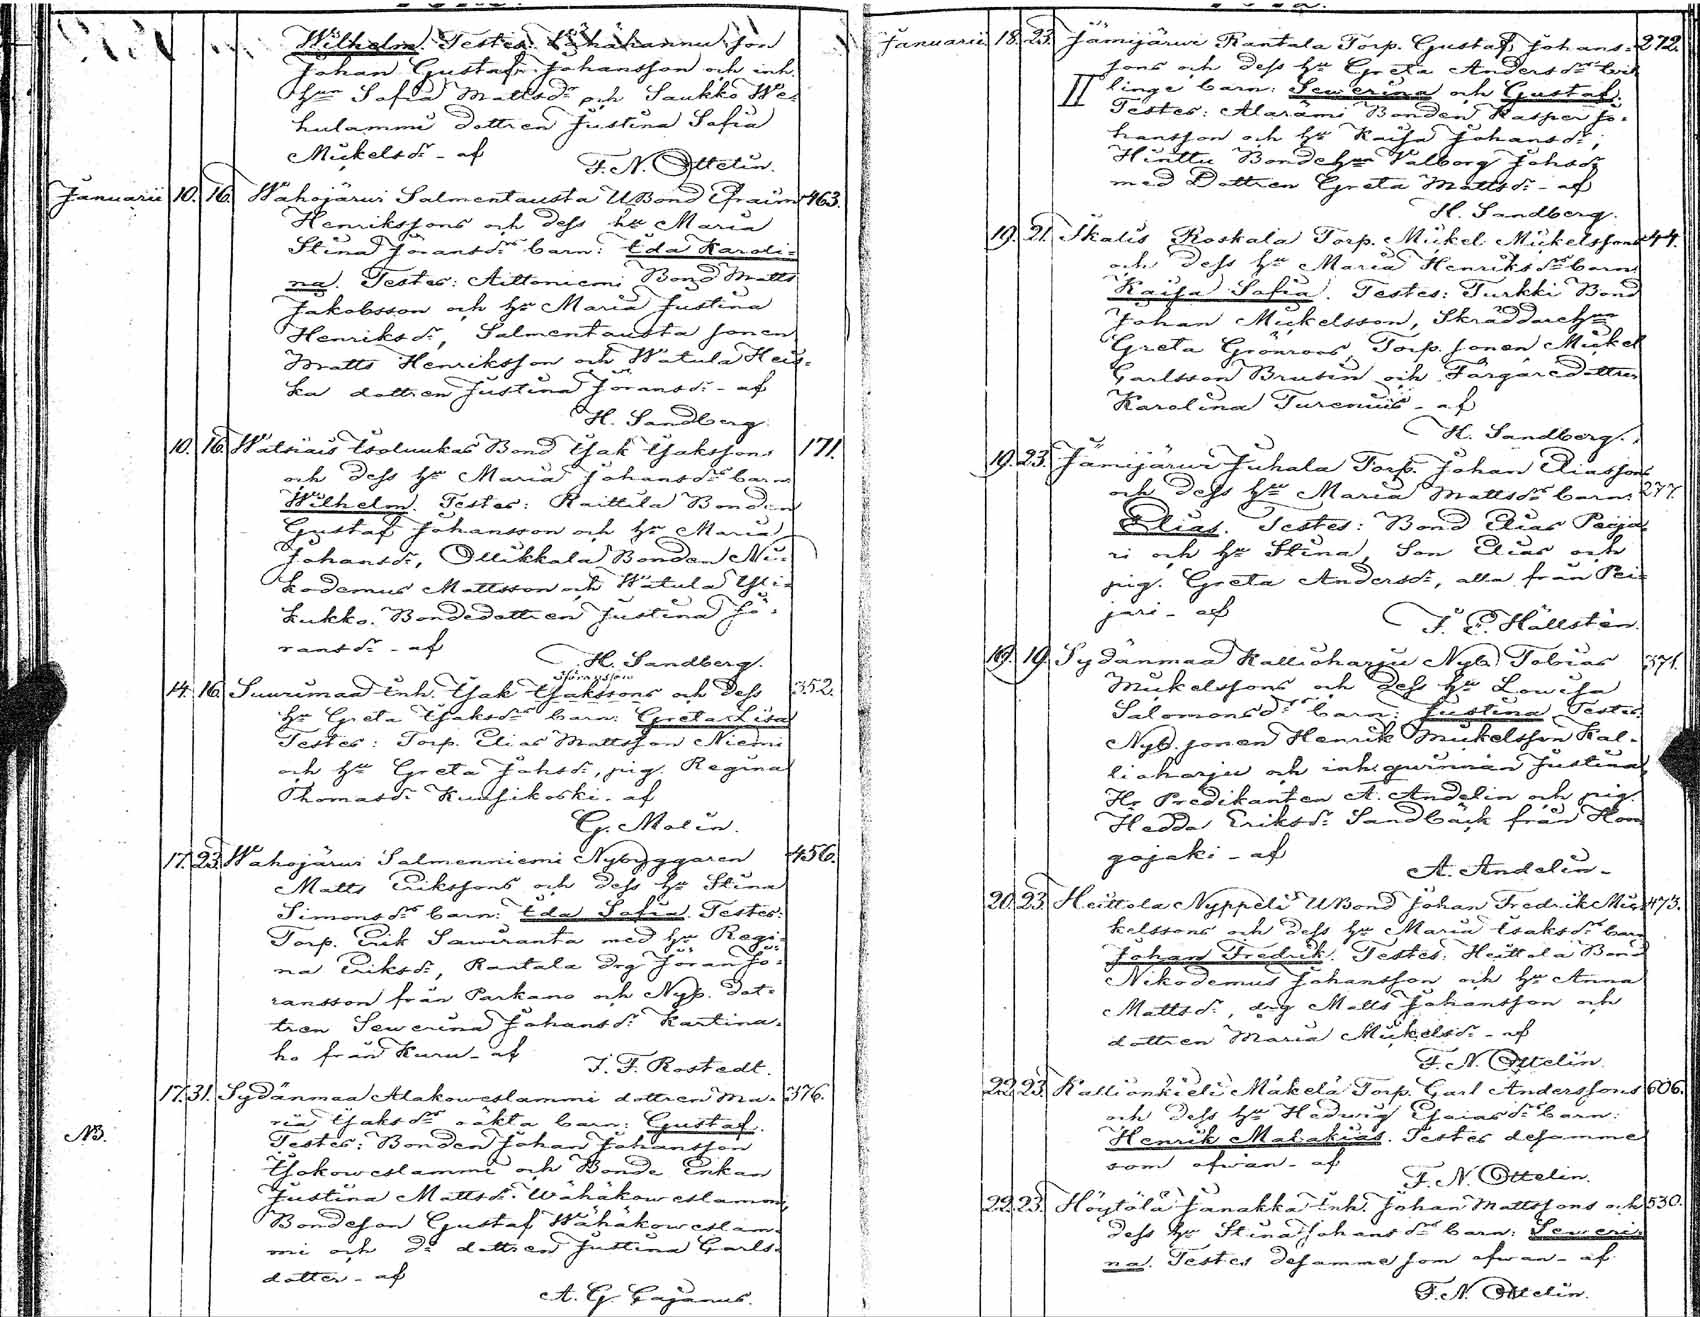 Wilhelm. Testes: Wähähannu son
Johan Gustaf Johansson och inh.
hu Sofia Mattsdr och Saukko We-
hulammi dottren Justina Sofia
Mickelsdr - af
F. N. Ottelin.
Januarii 10. 16. Wahojärwi Salmentausta UBond Efraim 463.
Henrikssons och dess hu Maria
Stina Jöransdrs barn: Eda Karoli-
na. Testes: Aittoniemi Bond Matts
Jakobsson och hu Maria Justina
Henriksdr, Salmentausta sonen
Matts Henriksson och Watula Heis-
ka dottren Justina Jöransdr - af
H. Sandberg
10. 16. Watsiais Isoluukas Bond Isak Isakssons 171.
och dess hu Maria Johansdrs barn
Wilhelm. Testes: Raittila Bonden
Gustaf Johansson och hu Maria
Johansdr, Ollikkala Bonden Ni-
kodemus Mattsson och Watula Yli-
kukko Bondedottren Justina Jö-
ransdr - af
H. Sandberg.
Jöransson
14. 16. Suurimaa Inh. Isak Isakssons och dess 352.
hu Greta Isaksdrs barn: Greta Lisa
Testes: Torp. Elias Mattsson Niemi
och hu Greta Johsdr, pig. Regina
Thomasdr Kuusikoski - af
G. Molin.
17. 23. Wahojärwi Salmenniemi Nybyggaren 456.
Matts Erikssons och dess hu Stina
Simonsdrs barn: Eda Sofia. Testes:
Torp. Erik Sawiranta med hu Regi-
na Eriksdr, Rantala drg Jöran Jö-
ransson från Parkano och Nyb. dot-
tren Sewerina Johansdr Kartina-
ho från Kuru - af
J. F. Rostedt.
17. 31. Sydänmaa Alakoweslammi dottren Ma- 376.
ria Isaksdrs oäkta barn: Gustaf.
NB. Testes: Bonden Johan Johansson
Isokoweslammi och Bonde Enkan
Justina Mattsdr Wähäkoweslammi,
Bondeson Gustaf Wähäkoweslam-
mi och do dottren Justina Carls-
dotter - af
A. G. Cajanus.
Januarii 18. 23. Jämijärwi Rantala Torp. Gustaf Johans- 272.
sons och dess hu Greta Andersdrs twil-
II linge barn: Sewerina och Gustaf.
Testes: Alarämi Bonden Kasper Jo-
hansson och hu Kaisa Johansdr;
Hinttu Bondehu Valborg Johsdr
med Dottren Greta Mattsdr - af
H. Sandberg.
19. 21. Skalis Koskala Torp. Mickel Mickelssons 44.
och dess hu Maria Henriksdrs barn
Kaisa Sofia. Testes: Turkki Bond
Johan Mickelsson, Skräddarehu
Greta Grönroos, Torp. sonen Mickel
Carlsson Brusin och Färgaredottren
Karolina Turenius - af
H. Sandberg.
19. 23. Jämijärwi Juhala Torp. Johan Eliassons
och dess hu Maria Mattsdrs barn: 277.
Elias. Testes: Bond Elias Peija-
ri och hu Stina, Son Elias och
pig. Greta Andersdr, alla från Pei-
jari - af
F. E. Hällstén.
19. 19. Sydänmaa Kallioharju Nyb. Tobias 371.
Mickelssons och dess hu Lowisa
Salomonsdrs barn: Justina Testes:
Nyb. sonen Henrik Mickelsson Kal-
lioharju och inh. qwinnan Justina,
Hr Predikanten A. Andelin och pig.
Hedda Eriksdr Sandbäck från Hon
gojoki - af
A. Andelin -
20. 23. Heittola Nyppeli UBond Johan Fredrik Mic- 473.
kelssons och dess hu Maria Isaksdrs barn
Johan Fredrik. Testes: Heittola Bond
Nikodemus Johansson och hu Anna
Mattsdr, drg Matts Johansson och
dottren Maria Mickelsdr - af
F. N. Ottelin.
22. 23. Kallionkieli Mäkelä Torp. Carl Anderssons 606.
och dess hu Hedwig Esaiasdrs barn:
Henrik Malakias. Testes desamme
som ofwan - af
F. N. Ottelin.
22. 23. Höytölä Janakka Inh. Johan Mattssons och 530.
dess hu Stina Johansdrs barn: Seweri-
na. Testes desamme som ofwan - af
F. N. Ottelin.